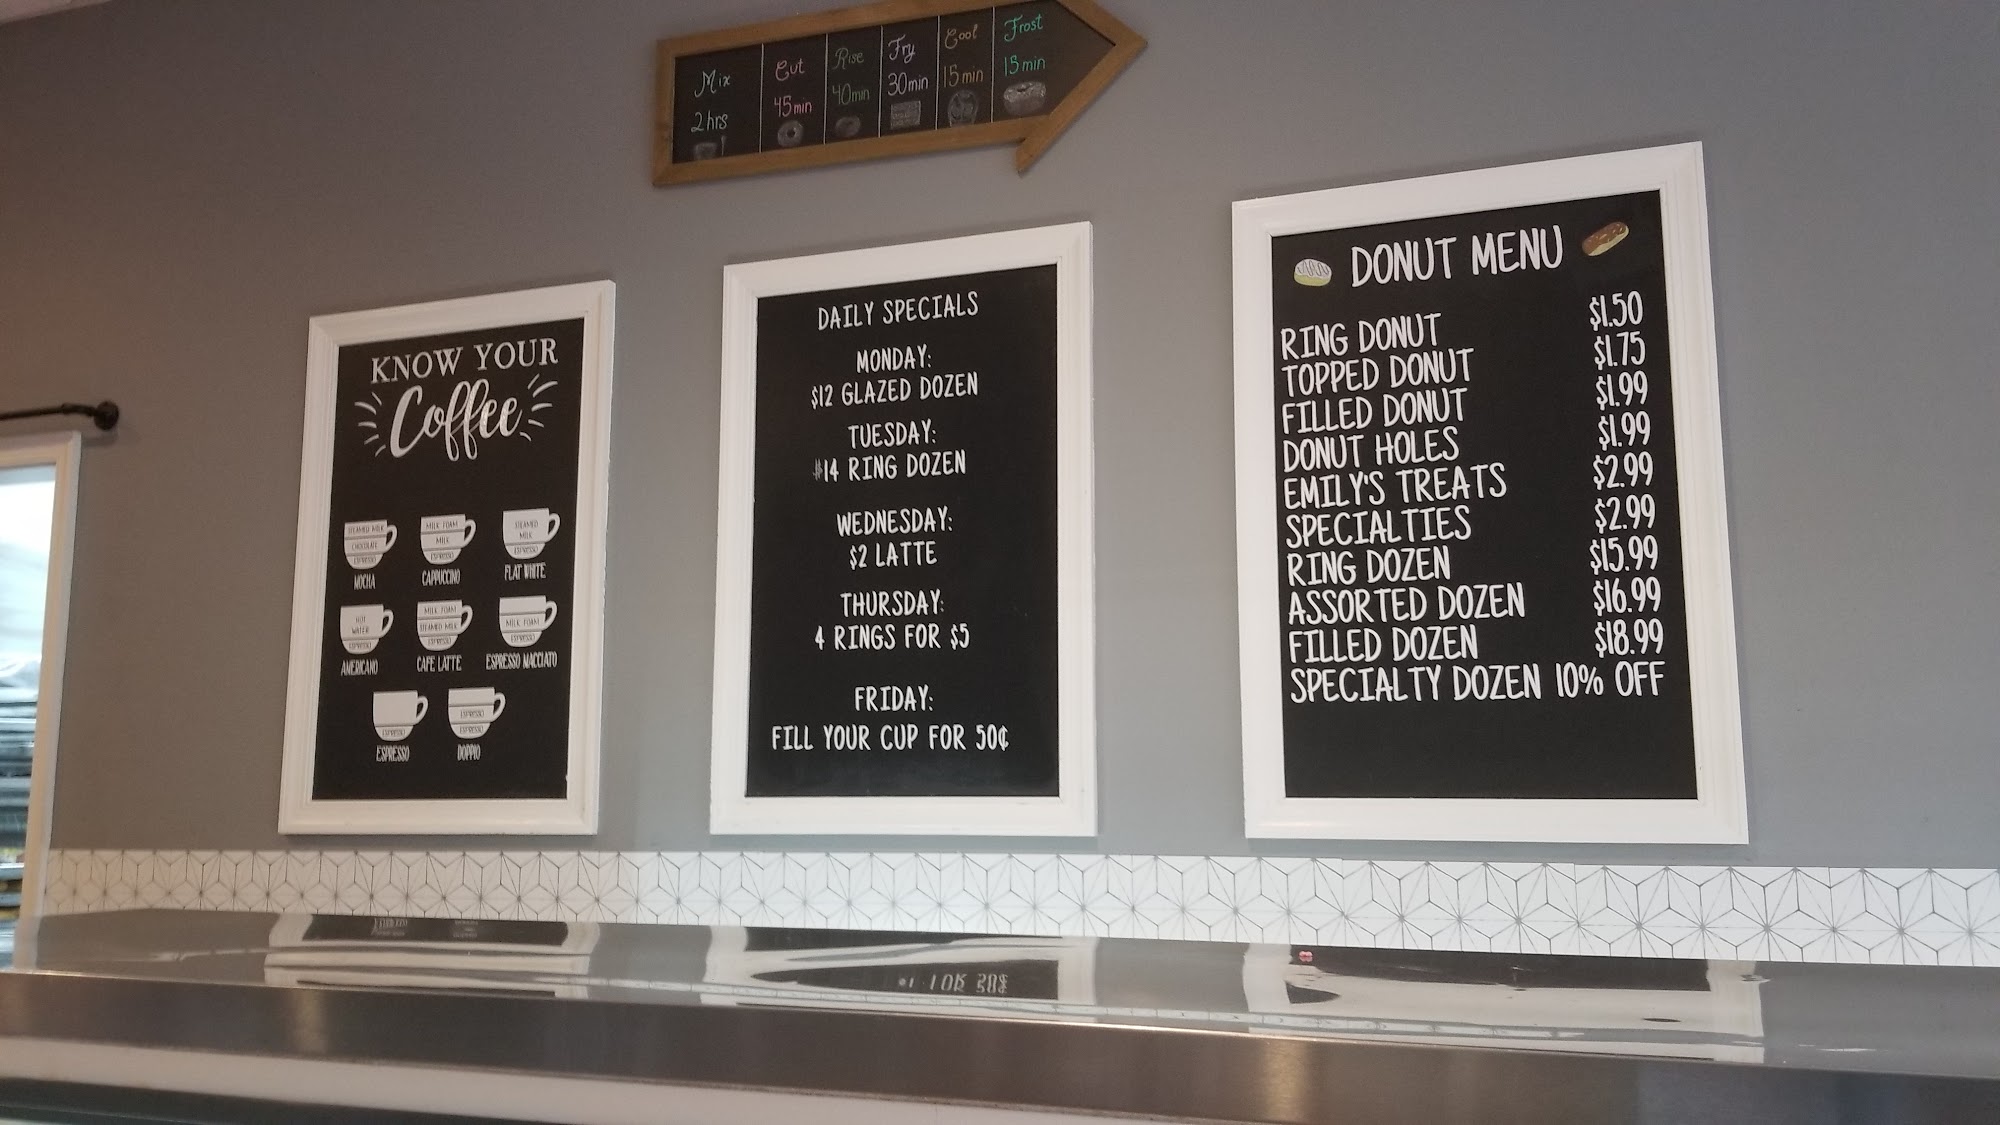 Mix
2 hrs
Cut
45 min
Rise
40 min
Fry
30 min
Cool
15 min
Frost
15 min
KNOW YOUR
Coffee
STEAMED MILK
CHOCOLATE
ESPRESSO
MOCHA
MILK FOAM
MILK
ESPRESSO
CAPPUCCINO
STEAMED
MILK
ESPRESSO
FLAT WHITE
HOT
WATER
ESPRESSO
AMERICANO
MILK FOAM
STEAMED MILK
ESPRESSO
CAFE LATTE
MILK FOAM
ESPRESSO
ESPRESSO MACCIATO
ESPRESSO
ESPRESSO
ESPRESSO
ESPRESSO
DOPPIO
DAILY SPECIALS
MONDAY:
$12 GLAZED DOZEN
TUESDAY:
$14 RING DOZEN
WEDNESDAY:
$2 LATTE
THURSDAY:
4 RINGS FOR $5
FRIDAY:
FILL YOUR CUP FOR 50¢
DONUT MENU
RING DONUT $1.50
TOPPED DONUT $1.75
FILLED DONUT $1.99
DONUT HOLES $1.99
EMILY'S TREATS $2.99
SPECIALTIES $2.99
RING DOZEN $15.99
ASSORTED DOZEN $16.99
FILLED DOZEN $18.99
SPECIALTY DOZEN 10% OFF